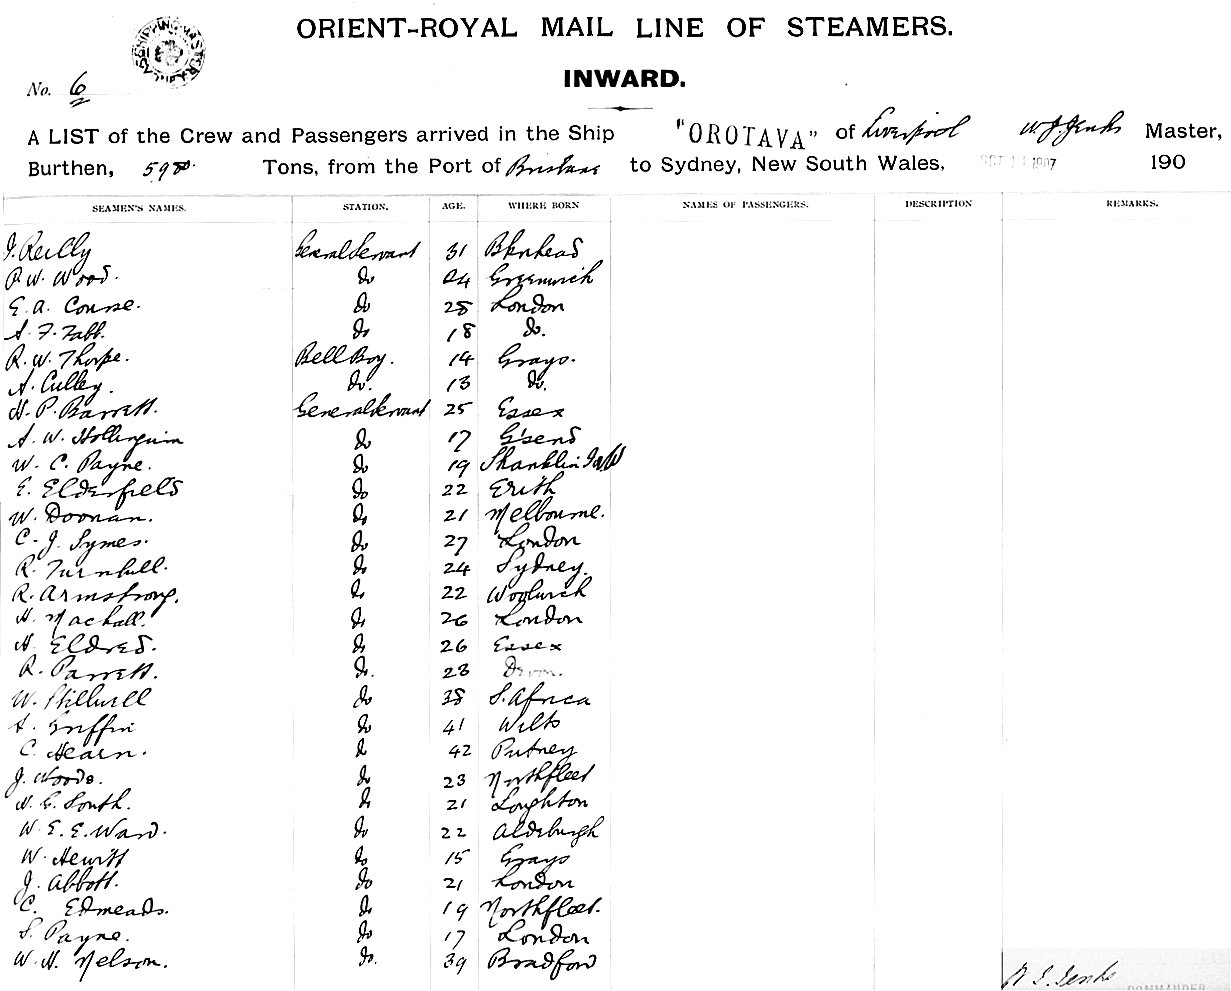 ORIENT-ROYAL MAIL LINE OF STEAMERS.
INWARD.
No. 6
A LIST of the Crew and Passengers arrived in the Ship "OROTAVA" of Liverpool W J Jenks Master,
Burthen, 5980 Tons, from the Port of Brisbane to Sydney, New South Wales, OCT 14 1907 190
SEAMEN'S NAMES. STATION. AGE. WHERE BORN NAMES OF PASSENGERS. DESCRIPTION REMARKS.
J. Reilly General Servant 31 B'kenhead
R. W. Wood. Do 24 Greenwich
E. A. Course. Do 28 London
A. F. Tabb. Do 18 Do.
R. W. Thorpe. Bell Boy. 14 Grays.
A. Culley. Do. 13 Do.
H. P. Barrett. General Servant 25 Essex
A. W. Do 17 G'send
W. C. Payne. Do 19 Shanklin I o W
E. Elderfield Do 22 Erith
W. Doonan. Do 21 Melbourne.
C. J. Symes. Do 27 London
R. Turnbull. Do 24 Sydney.
R. Armstrong. Do 22 Woolwich
H. Machall. Do 26 London
H. Eldred. Do 26 Essex
R. Parrett. Do. 23 Devon.
W. Stillwell Do 38 S. Africa
A. Griffin Do 41 Wilts
C. Hearn. Do 42 Putney
J. Woods. Do 23 Northfleet
H. G. South. Do 21 Loughton
W. E. E. Ward. Do 22 Aldeburgh
W. Hewitt Do 15 Grays
J. Abbott. Do 21 London
C. Edmeads. Do 19 Northfleet.
S. Payne. Do 17 London
W. H. Nelson. Do. 39 Bradford
Jenks
COMMANDER